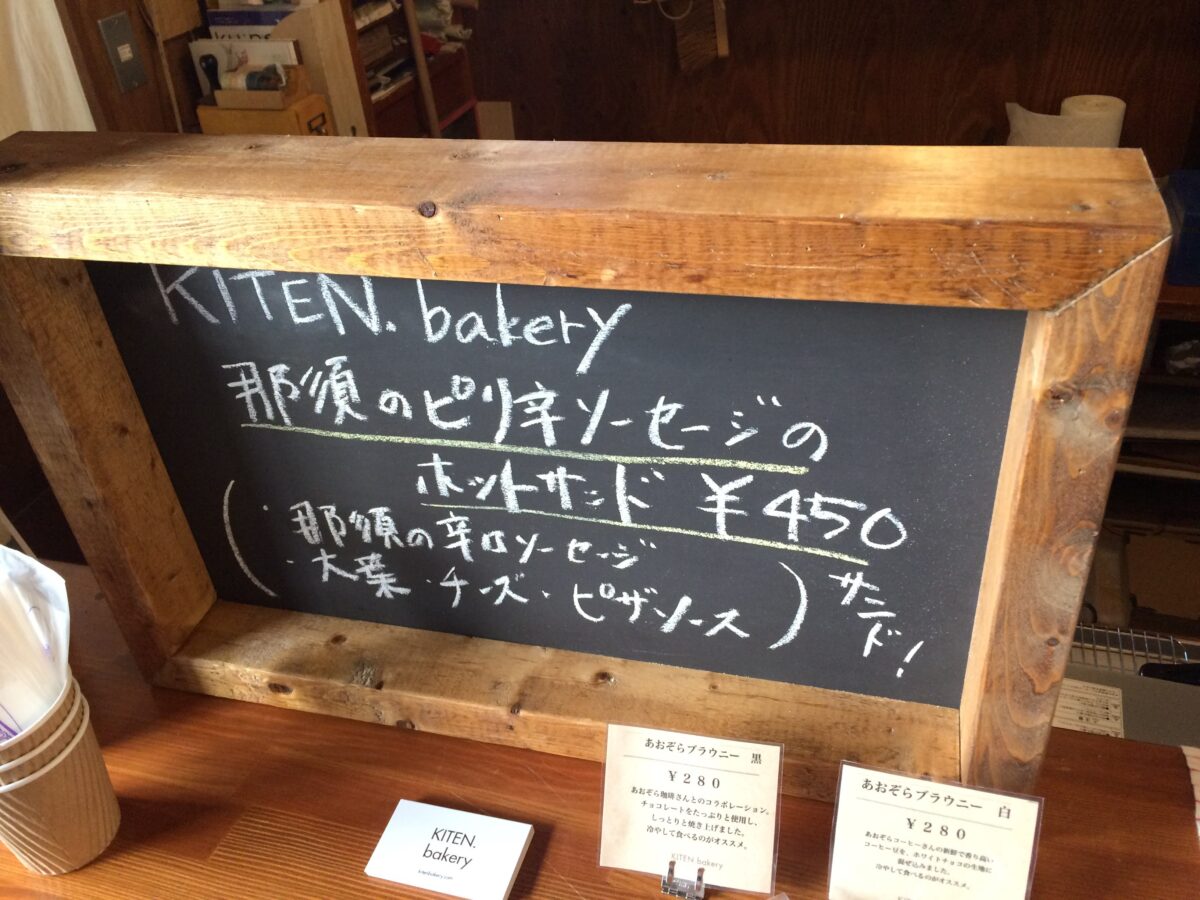 KITEN. bakery
那須のピリ辛ソーセージの
ホットサンド ¥450
(・那須の辛口ソーセージ
・大葉・チーズ・ピザソース) サンド!
KITEN.
bakery
kitenbakery.com
あおぞらブラウニー 黒
¥280
あおぞら珈琲さんとのコラボレーション。
チョコレートをたっぷりと使用し、
しっとりと焼き上げました。
冷やして食べるのがオススメ。
KITEN bakery
あおぞらブラウニー 白
¥280
あおぞらコーヒーさんの新鮮で香り高い
コーヒー豆を、ホワイトチョコの生地に
混ぜ込みました。
冷やして食べるのがオススメ。